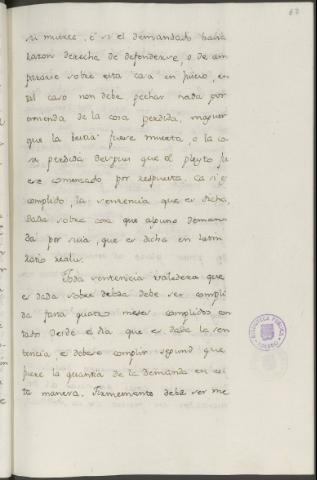 63
si muere, o si el demandado havia
razon derecha de defenderse, o de am
pararse sobre esta cosa en juicio, en
tal caso non debe pechar nada por
emenda de la cosa perdida, maguer
que la bestia fuere muerta, o la co
sa perdida despues que el pleyto fu
ere comenzado por respuesta. Ca si es
complido, la sentencia que es dicha,
dada sobre cosa que alguno deman
da por suia, que es dicha en latin
realis.
Toda sentencia valedera que
es dada sobre debda debe ser compli
da fasta quatro meses complidos con
tados desde el dia que es dada la sen
tencia e debese complir segund que
fuere la quantia de la demanda en es
ta manera. Primeramente debe ser me